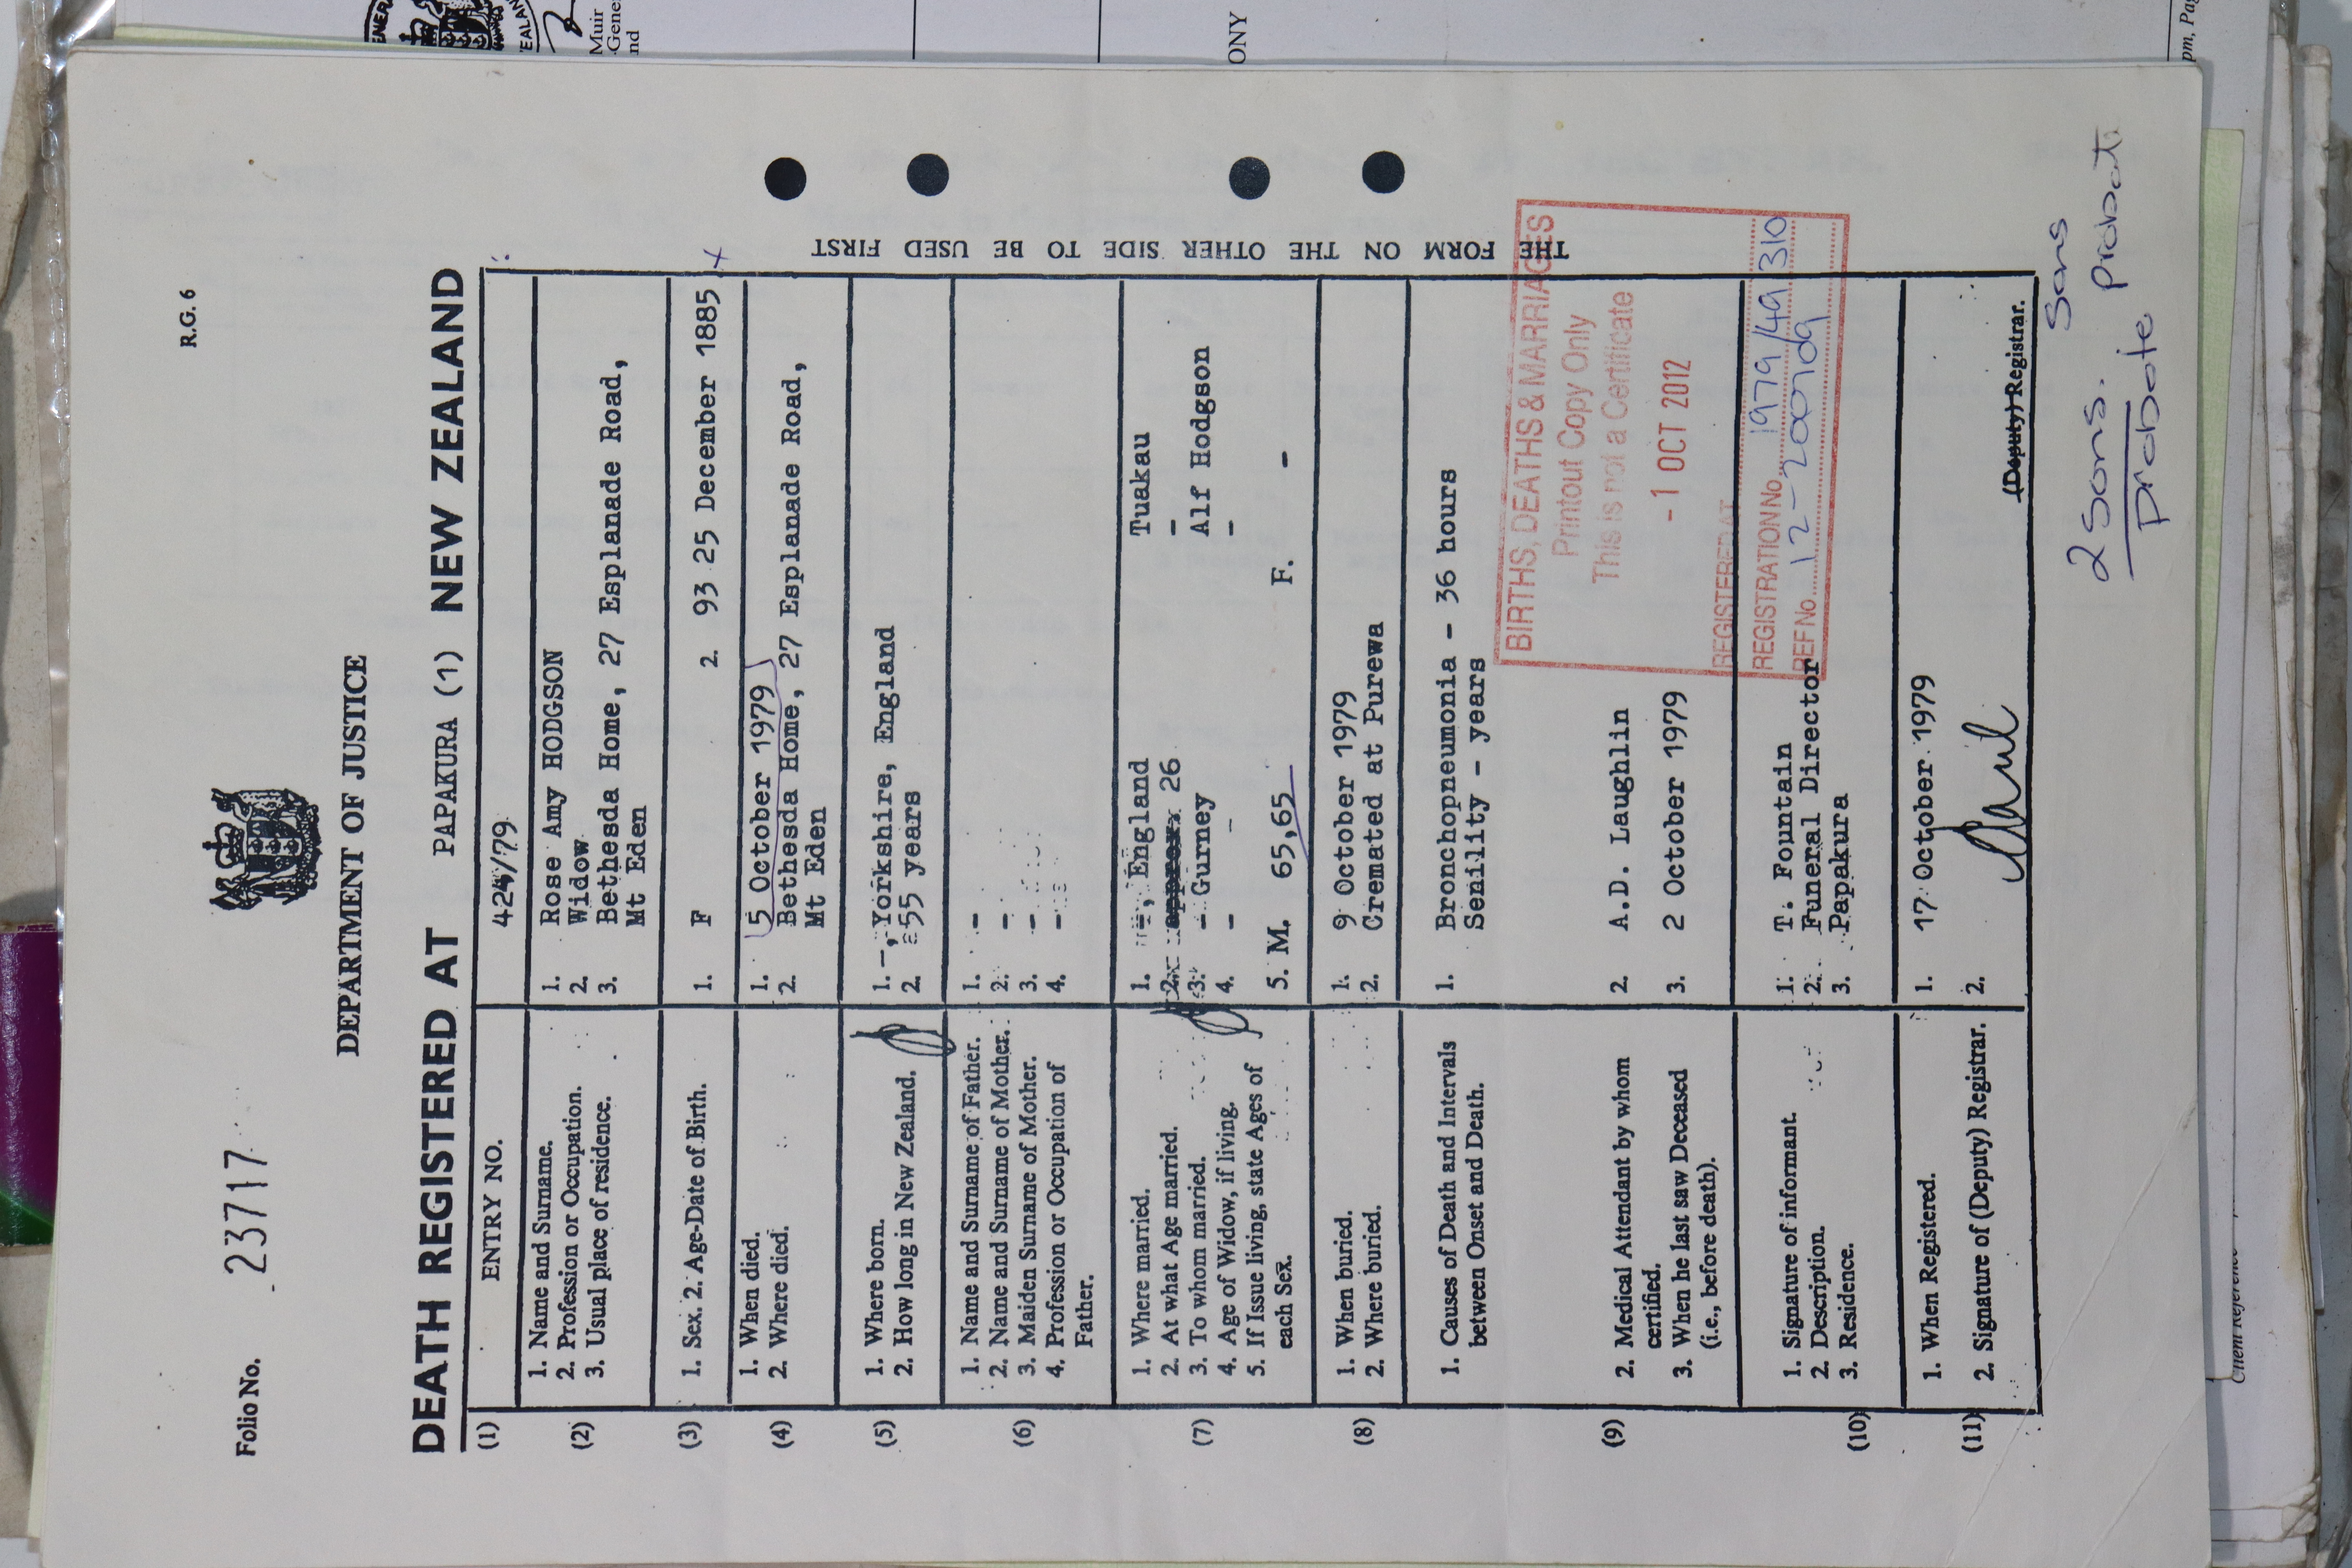 R.G. 6
Folio No. 23717
DEPARTMENT OF JUSTICE
DEATH REGISTERED AT PAPAKURA (1) NEW ZEALAND
(1) ENTRY NO. 424/79
(2) 1. Name and Surname. 1. Rose Amy HODGSON
2. Profession or Occupation. 2. Widow
3. Usual place of residence. 3. Bethesda Home, 27 Esplanade Road,
Mt Eden
(3) 1. Sex. 2. Age-Date of Birth. 1. F 2. 93 25 December 1885 x
(4) 1. When died. 1. 5 October 1979
2. Where died. 2. Bethesda Home, 27 Esplanade Road,
Mt Eden
(5) 1. Where born. 1. -, Yorkshire, England
2. How long in New Zealand. 2. 55 years
(6) 1. Name and Surname of Father. 1. -
2. Name and Surname of Mother. 2. -
3. Maiden Surname of Mother. 3. -
4. Profession or Occupation of 4. -
Father.
(7) 1. Where married. 1. -, England Tuakau
2. At what Age married. 2. approx 26 -
3. To whom married. 3. - Gurney Alf Hodgson
4. Age of Widow, if living. 4. - - -
5. If Issue living, state Ages of 5. M. 65,65 F. -
each Sex.
(8) 1. When buried. 1. 9 October 1979
2. Where buried. 2. Cremated at Purewa
(9) 1. Causes of Death and Intervals 1. Bronchopneumonia - 36 hours
between Onset and Death. Senility - years
2. Medical Attendant by whom 2. A.D. Laughlin
certified.
3. When he last saw Deceased 3. 2 October 1979
(i.e., before death).
(10) 1. Signature of informant. 1. T. Fountain
2. Description. 2. Funeral Director
3. Residence. 3. Papakura
(11) 1. When Registered. 1. 17 October 1979
2. Signature of (Deputy) Registrar. 2. (Deputy) Registrar.
THE FORM ON THE OTHER SIDE TO BE USED FIRST
BIRTHS, DEATHS & MARRIAGES
Printout Copy Only
This is not a Certificate
-1 OCT 2012
REGISTERED AT
REGISTRATION No. 1979/49310
REF No.
sons
2 sons. probate
probate
Muir
ONY
Client Reference